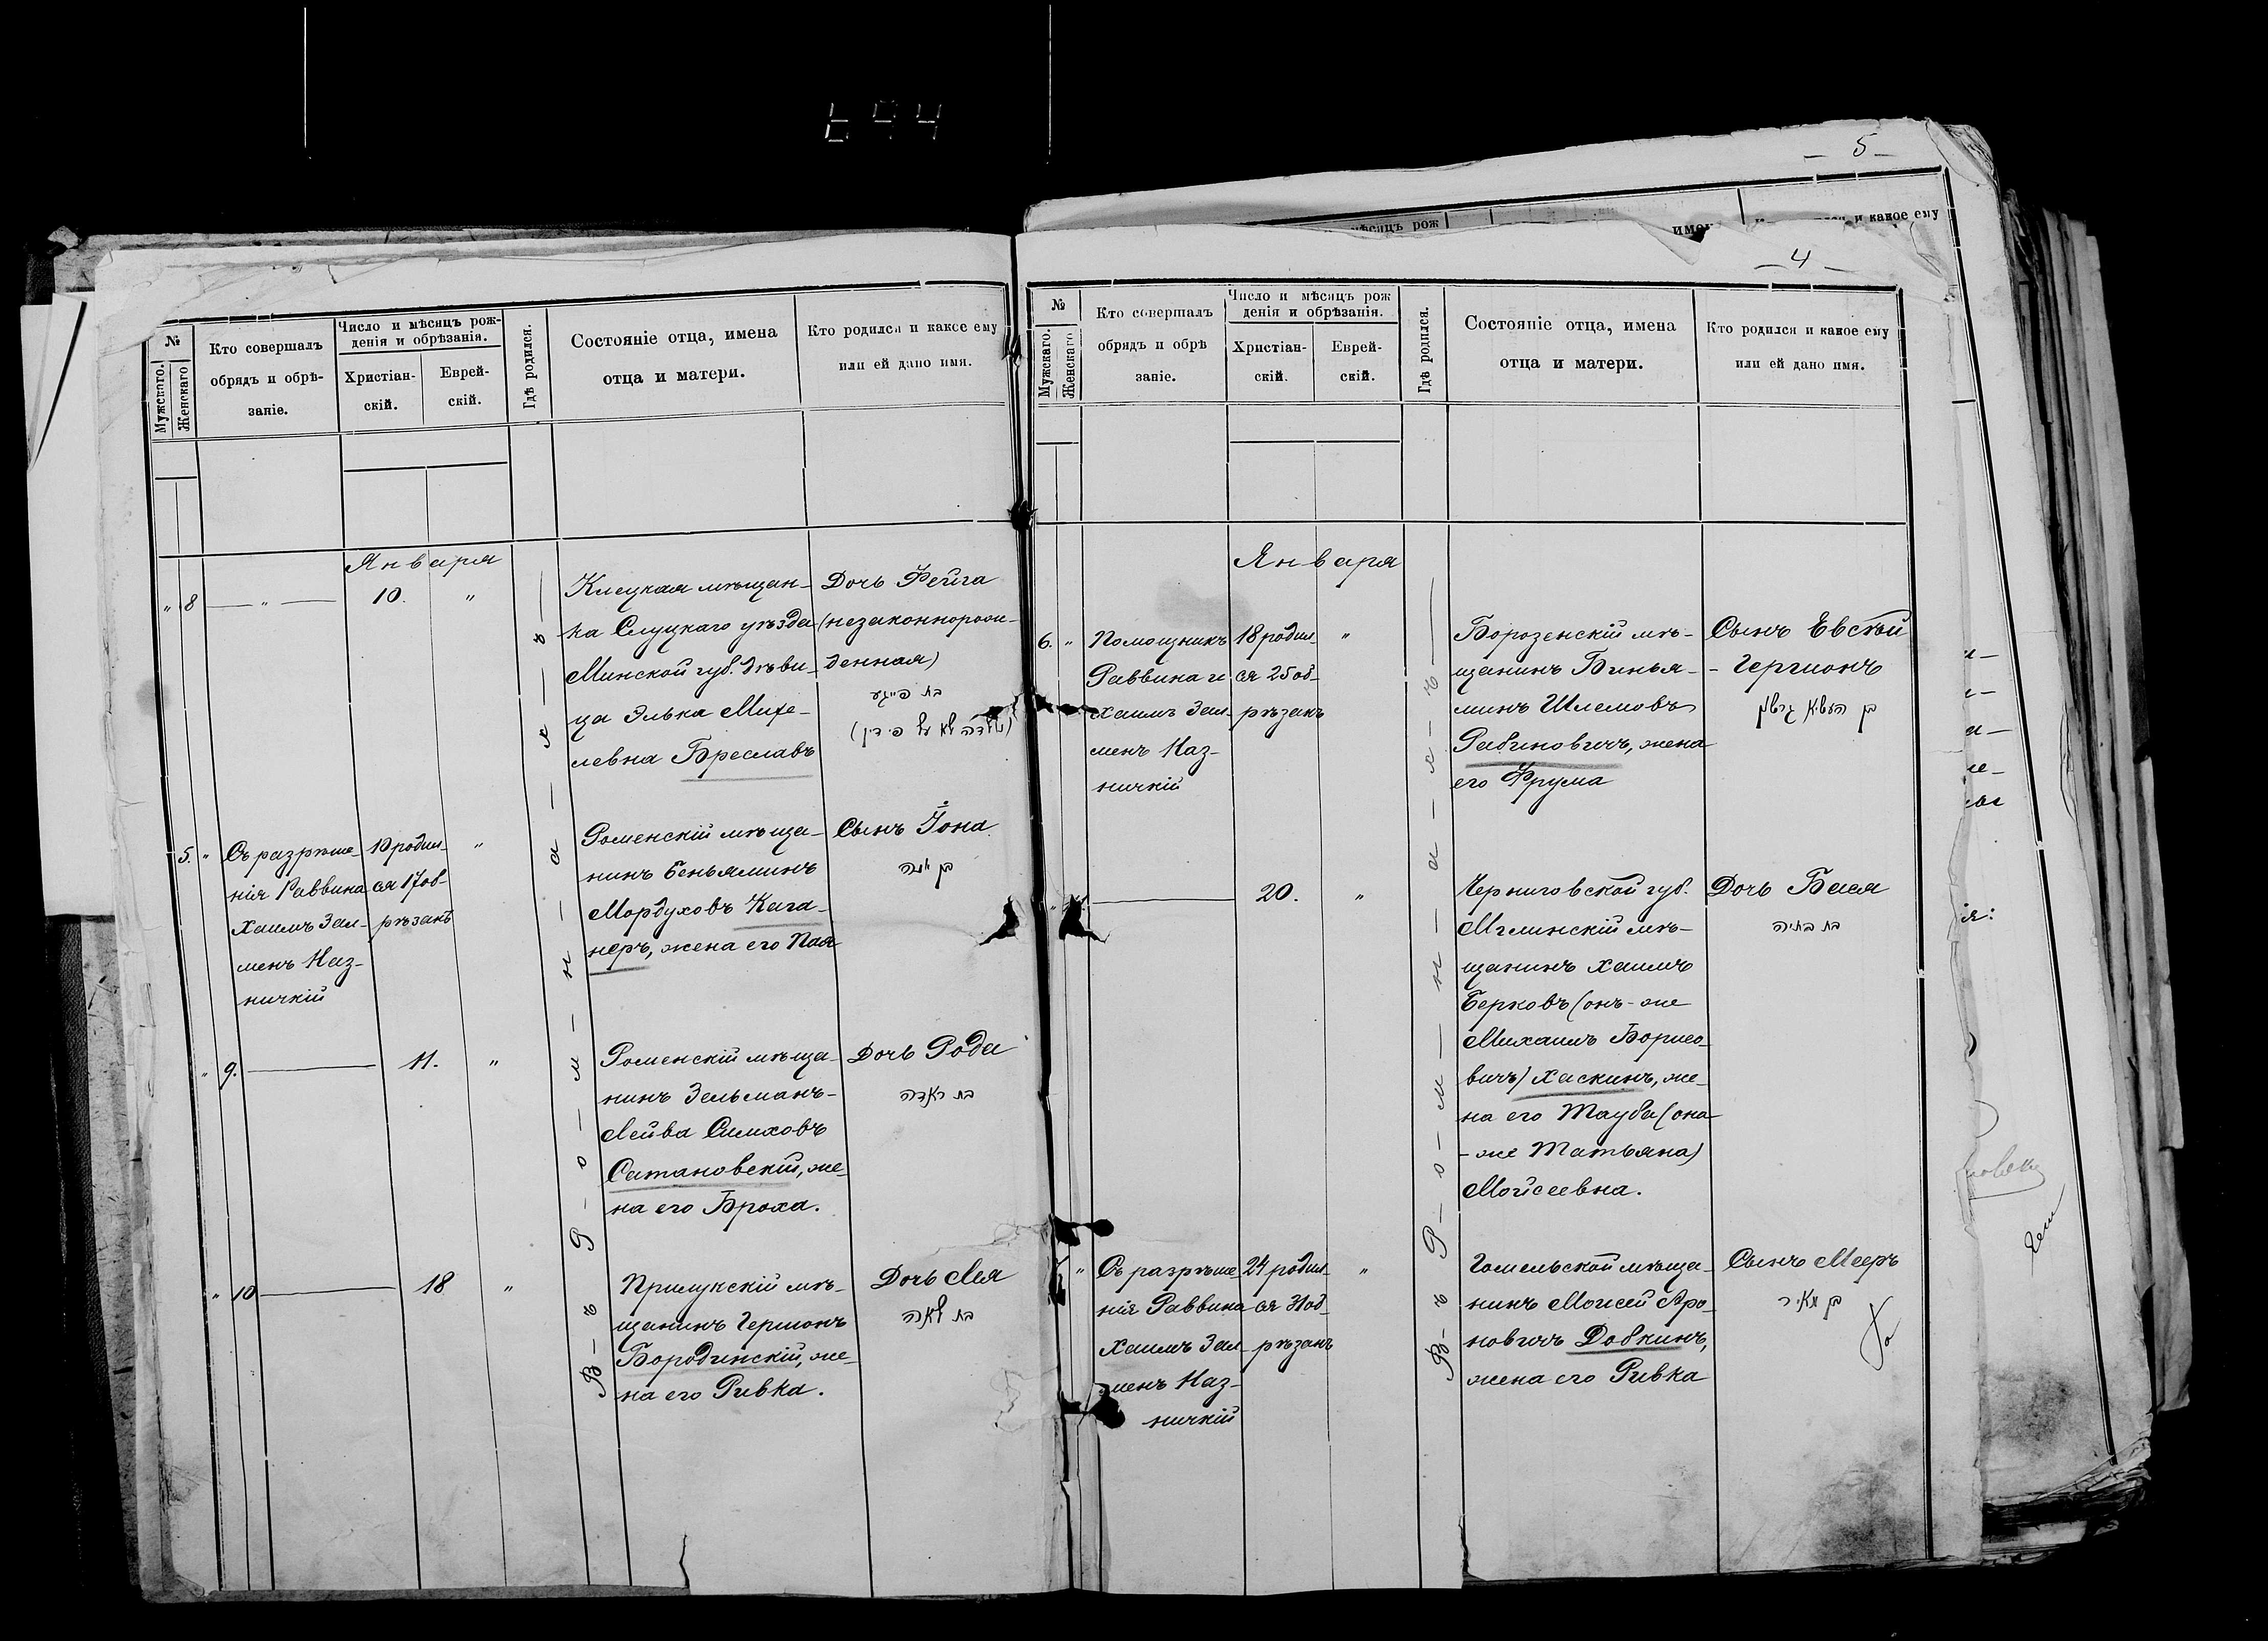 694
— 5 —
мѣсяцъ рож
имен
и какое ему
№
Мужскаго.
Женскаго
Кто совершалъ
обрядъ и обрѣ-
заніе.
Число и мѣсяцъ рож-
денія и обрѣзанія.
Христіан-
скій.
Еврей-
скій.
Гдѣ родился.
Состояніе отца, имена
отца и матери.
Кто родился и какое ему
или ей дано имя.
Января
" 8 — " — 10. "
Клецкая мѣщан-
ка Слуцкаго уѣзда
Минской губ. дѣви-
ца Элька Михе-
левна Бреславъ
Дочь Фейга
(незаконнорож-
денная)
בת פייגע
(נולדה לא על פי דין)
5. " Съ разрѣше-
нія Раввина
Хаимъ Зал-
менъ Каз-
ничкій
10 родил-
ся 17 об-
рѣзанъ
"
Роменскій мѣща-
нинъ Беньяминъ
Мордуховъ Кага-
неръ, жена его Пая
Сынъ Іона
בן יונה
" 9. — 11. "
Роменскій мѣща-
нинъ Зельманъ-
Лейва Симховъ
Сатановскій, же-
на его Броха.
Дочь Рода
בת ראדה
" 10 — 18 "
Прилукскій мѣ-
щанинъ Гершонъ
Бородинскій, же-
на его Ривка.
Дочь Лея
בת לאה
Въ Роменахъ
— 4 —
№
Мужскаго.
Женскаго
Кто совершалъ
обрядъ и обрѣ
заніе.
Число и мѣсяцъ рож
денія и обрѣзанія.
Христіан-
скій.
Еврей-
скій.
Гдѣ родился.
Состояніе отца, имена
отца и матери.
Кто родился и какое ему
или ей дано имя.
Января
6. " Помощникъ
Раввина
Хаимъ Зал-
менъ Каз-
ничкій
18 родил-
ся 25 об-
рѣзанъ
"
Борозенскій мѣ-
щанинъ Бинья-
минъ Шлемовъ
Рабиновичъ, жена
его Фрума
Сынъ Евсѣй
- Гершонъ
בן הושיא גרשון
— 20. "
Черниговской губ.
Мглинскій мѣ-
щанинъ Хаимъ
Берковъ (онъ-же
Михаилъ Борисо-
вичъ) Хаскинъ, же-
на его Тауба (она
-же Татьяна)
Мойсеевна.
Дочь Бася
בת בתיה
" Съ разрѣше-
нія Раввина
Хаимъ Зал-
менъ Каз-
ничкій
24 родил-
ся 31 об-
рѣзанъ
"
Гомельской мѣща-
нинъ Моисей Аро-
новичъ Добкинъ,
жена его Ривка
Сынъ Мееръ
בן מאיר
Въ Роменахъ